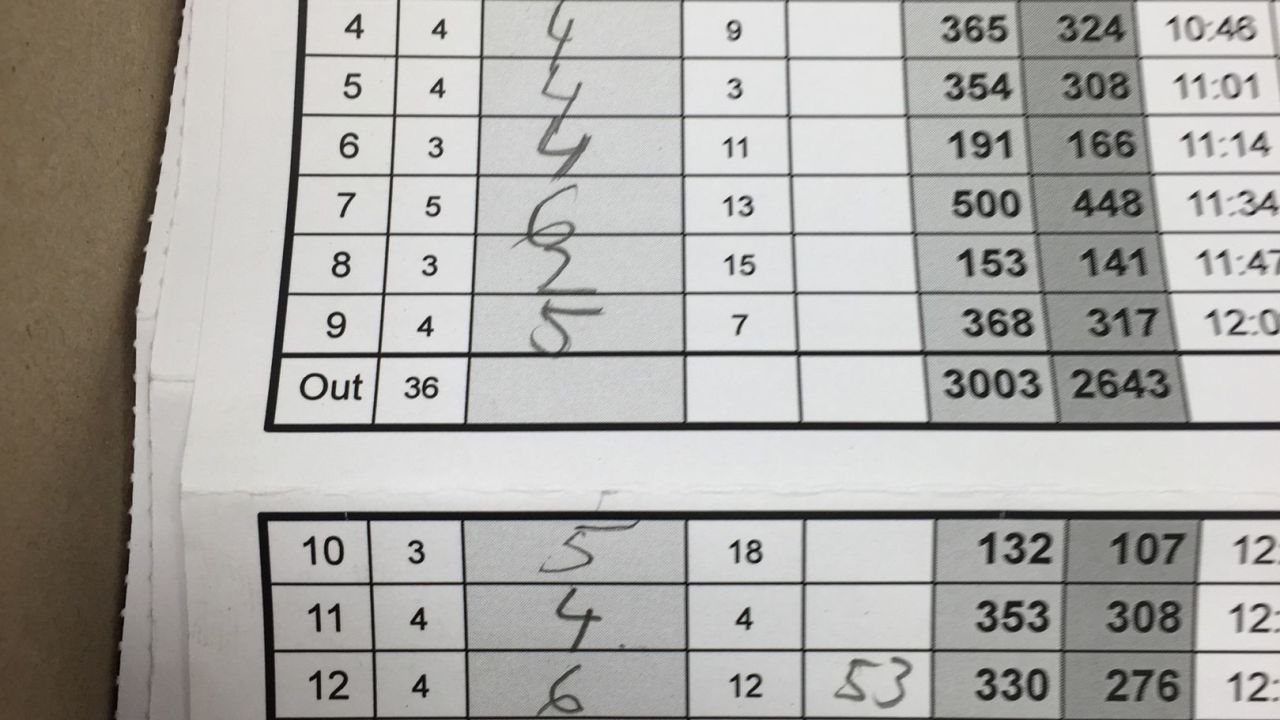 4 4 4 9 365 324 10:46
5 4 4 3 354 308 11:01
6 3 4 11 191 166 11:14
7 5 6 13 500 448 11:34
8 3 2 15 153 141 11:47
9 4 5 7 368 317 12:0
Out 36 3003 2643
10 3 5 18 132 107 12:
11 4 4 4 353 308 12:
12 4 6 12 53 330 276 12: